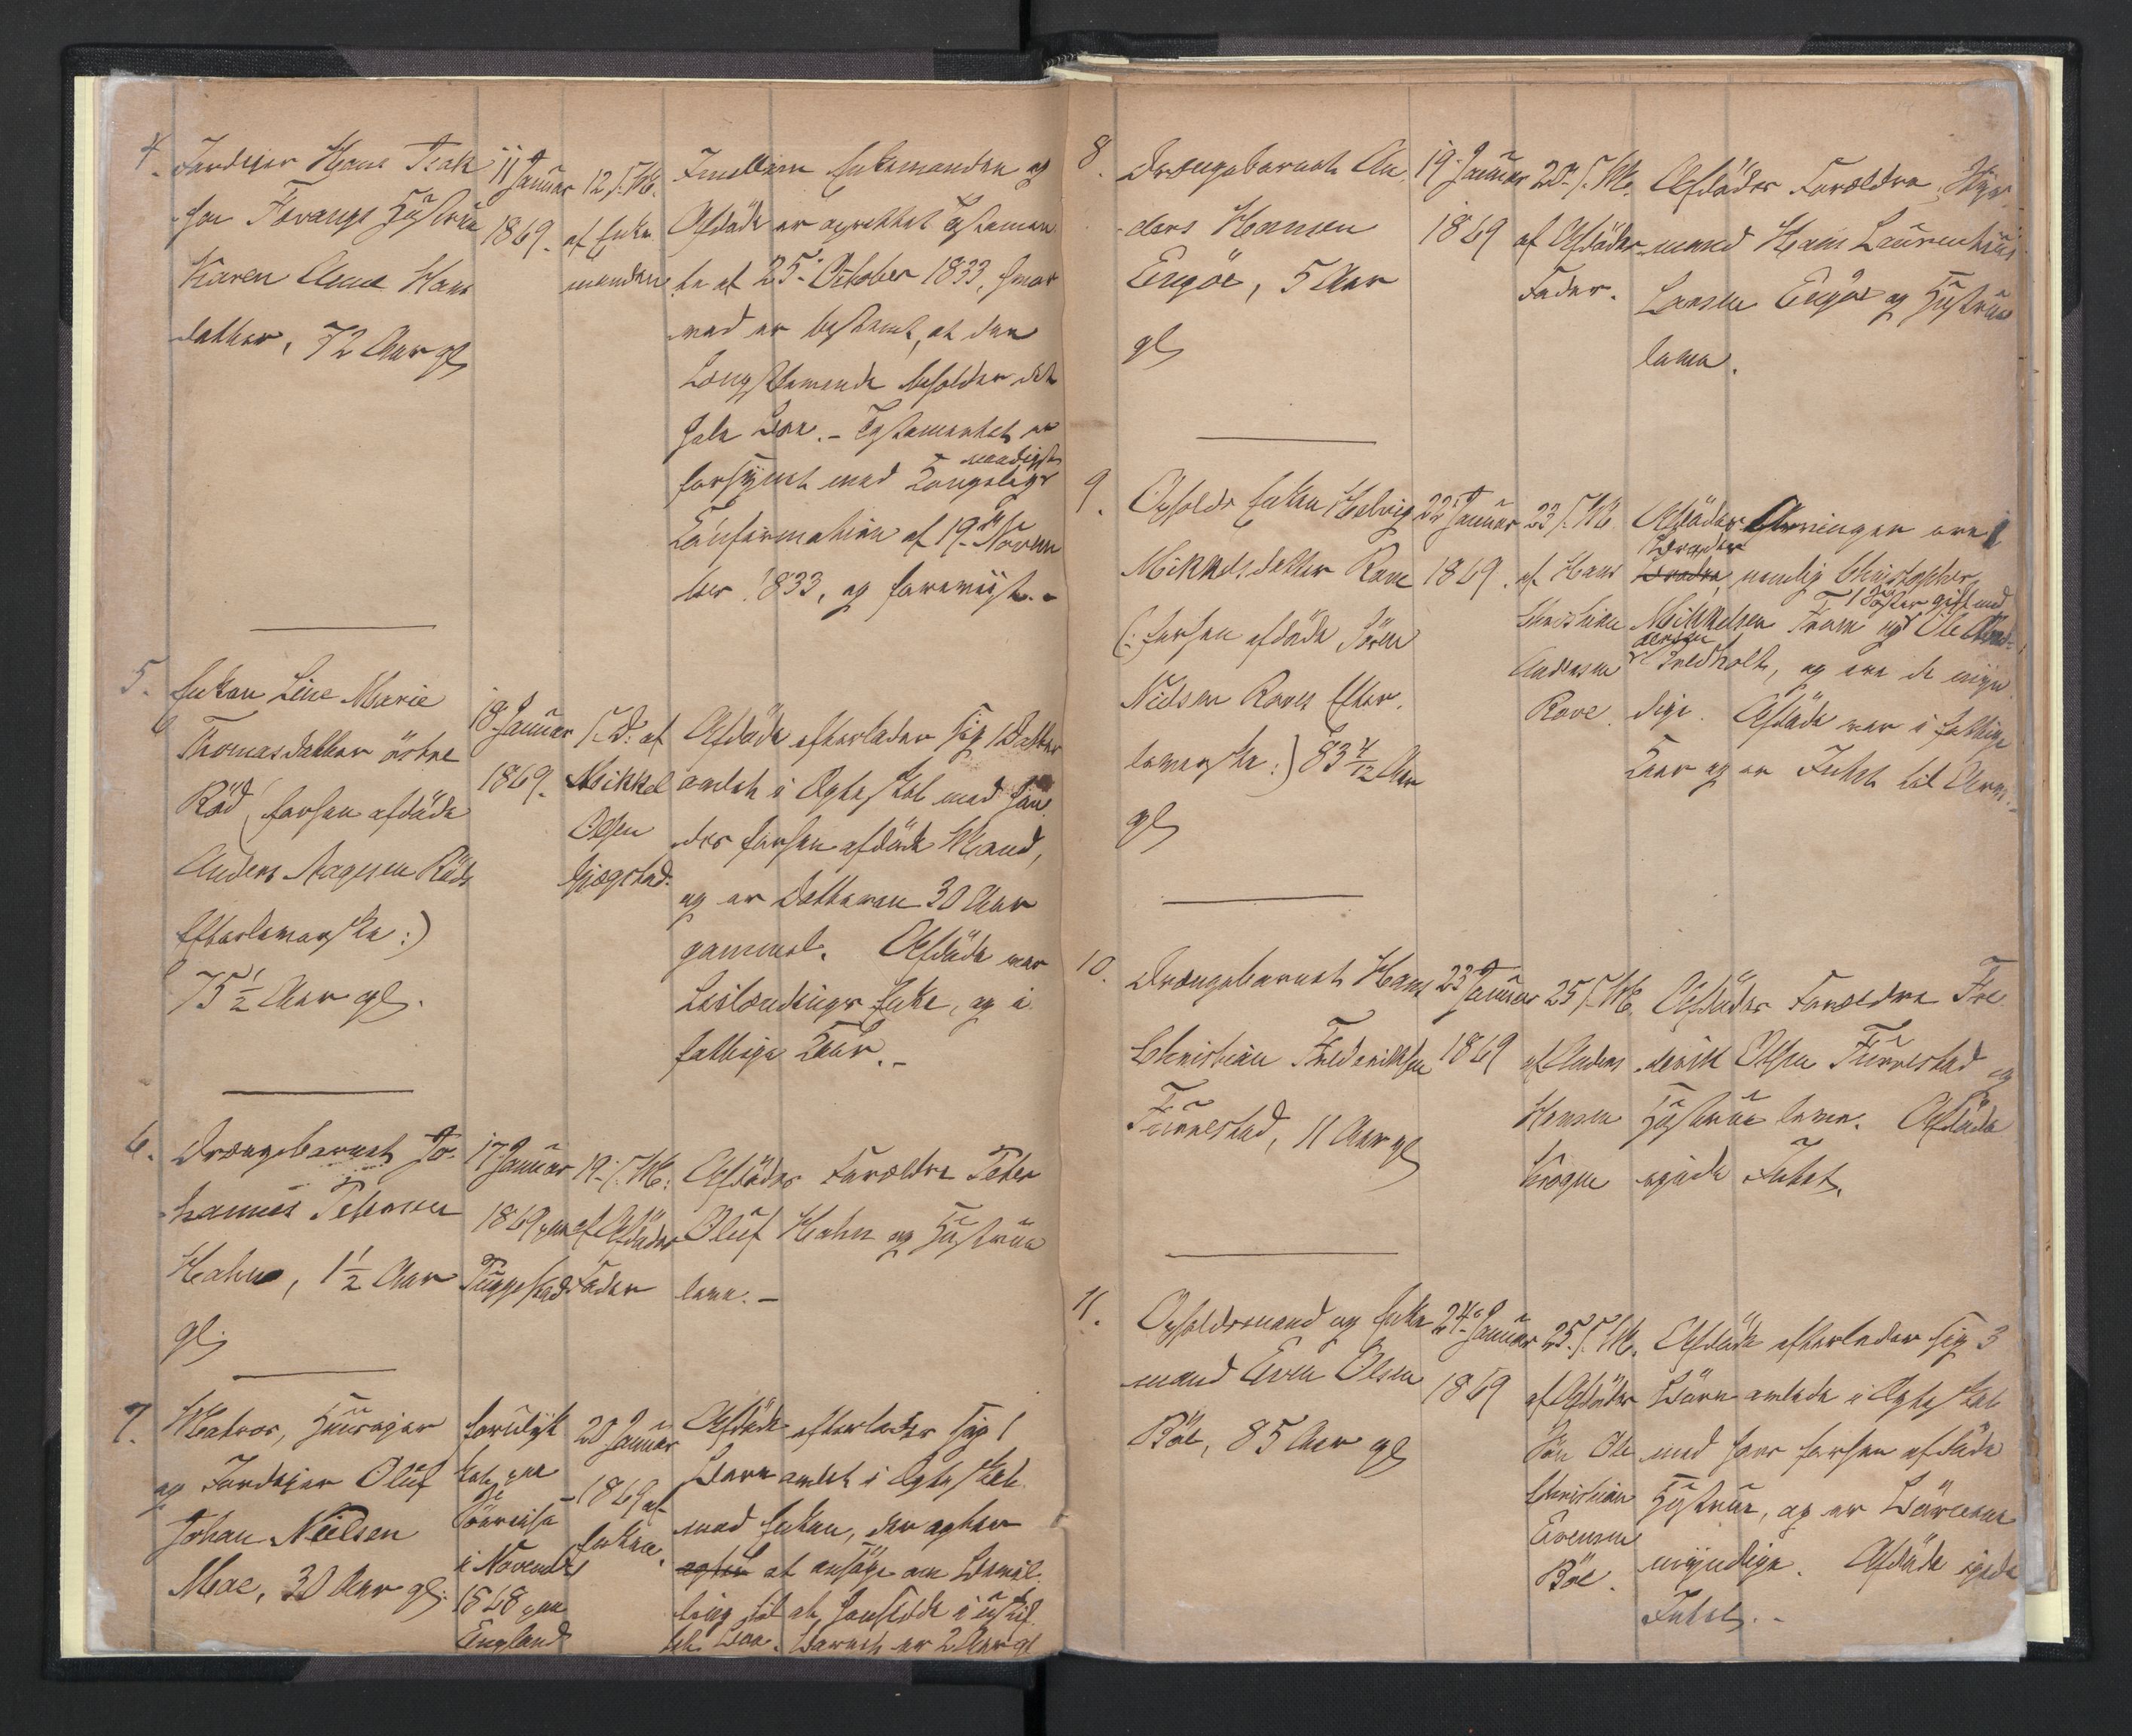 4.
Jordejer Hans Isak
sen Tovangs Hustrue
Karen Anne Hans
datter, 72 Aar gl
11 Januar
1869.
12 s. M.
af Enke
manden
Imellem Enkemanden og
Afdøde er oprettet Testamen
te af 25. October 1833, hvor
ved er bestemt, at den
Længstlevende beholder det
hele Boe. – Testamentet er
naadigst
forsynet med Kongelig
Confirmation af 19. Novem
ber 1833, og foreviist. –
5.
Enken Line Marie
Thomasdatter østre
Röd (: forhen afdøde
Anders Aagesen Röds
Efterleverske :)
75 1/2 Aar gl.
18 Januar
1869.
s. D. af
Mikkel
Olsen
Gjøgstad.
Afdøde efterlader sig 1 Datter
avlet i Ægteskab med hen
des forhen afdøde Mand,
og er Datteren 30 Aar
gammel. Afdøde var
Leilændings Enke, og i
fattige Kaar. –
6.
Drengebarnet Jo-
hannes Petersen
Hahn, 1 1/2 Aar
gl.
17 Januar
1869 paa
Tuggestad
19. s. M.
af Afdødes
Fader
Afdødes Forældre Peter
Oluf Hahn og Hustrue
leve. –
7.
Matros, Huusejer
og Jordejer Oluf
Johan Nielsen
Moe, 30 Aar gl.
forulyk
ket paa
Søreise
i Novembr
1868 paa
England
20 Januar
1869 af
Enken.
Afdøde efterlader sig 1
Barn avlet i Ægteskab
med Enken, der agter
agter at ansøge om Bevil
ling til at hensidde i uskif
tet Boe. Barnet er 2 Aar gl
8.
Drengebarnet An
ders Hansen
Engöe, 5 Aar
gl
19. Januar
1869
20. s. M.
af Afdødes
Fader.
Afdødes Forældre
mand Hans Laurentius
Larsen Engöe og Hustrue
leve.
9.
Opholds Enken Helvig
Mikkelsdatter Rove
(: forhen afdøde Sören
Nielsen Roves Efter,
leverske :) 83 4/12 Aar
gl
22 Januar
1869.
23 s. M.
af Hans
Christian
Andersen
Rove.
Afdødes Arvinger ere 1
Broder
Brodre, nemlig Christopher
1 Søster gift med
Mikkelsen Tram og Ole And-
ersen
Tredholt, og ere de myn
dige. Afdøde var i fattige
Kaar og er Intet til Arv. –
10.
Drengebarnet Hans
Christian Frederiksen
Furrestad, 11 Aar gl
23 Januar
1869
25 s. M.
af Anders
Hansen
Krogen
Afdødes Forældre Fre
derik Olsen Furrestad og
Hustrue leve. Afdøde
ejede Intet.
11.
Opholdsmand og Enke
mand Even Olsen
Böe, 85 Aar gl
24. Januar
1869
25. s. M.
af Afdødes
Søn Ole
Christian
Evensen
Böe.
Afdøde efterlader sig 3
Børn avlede i Ægteskab
med hans forhen afdøde
Hustrue, og er Børnene
myndige. Afdøde ejede
Intet. –